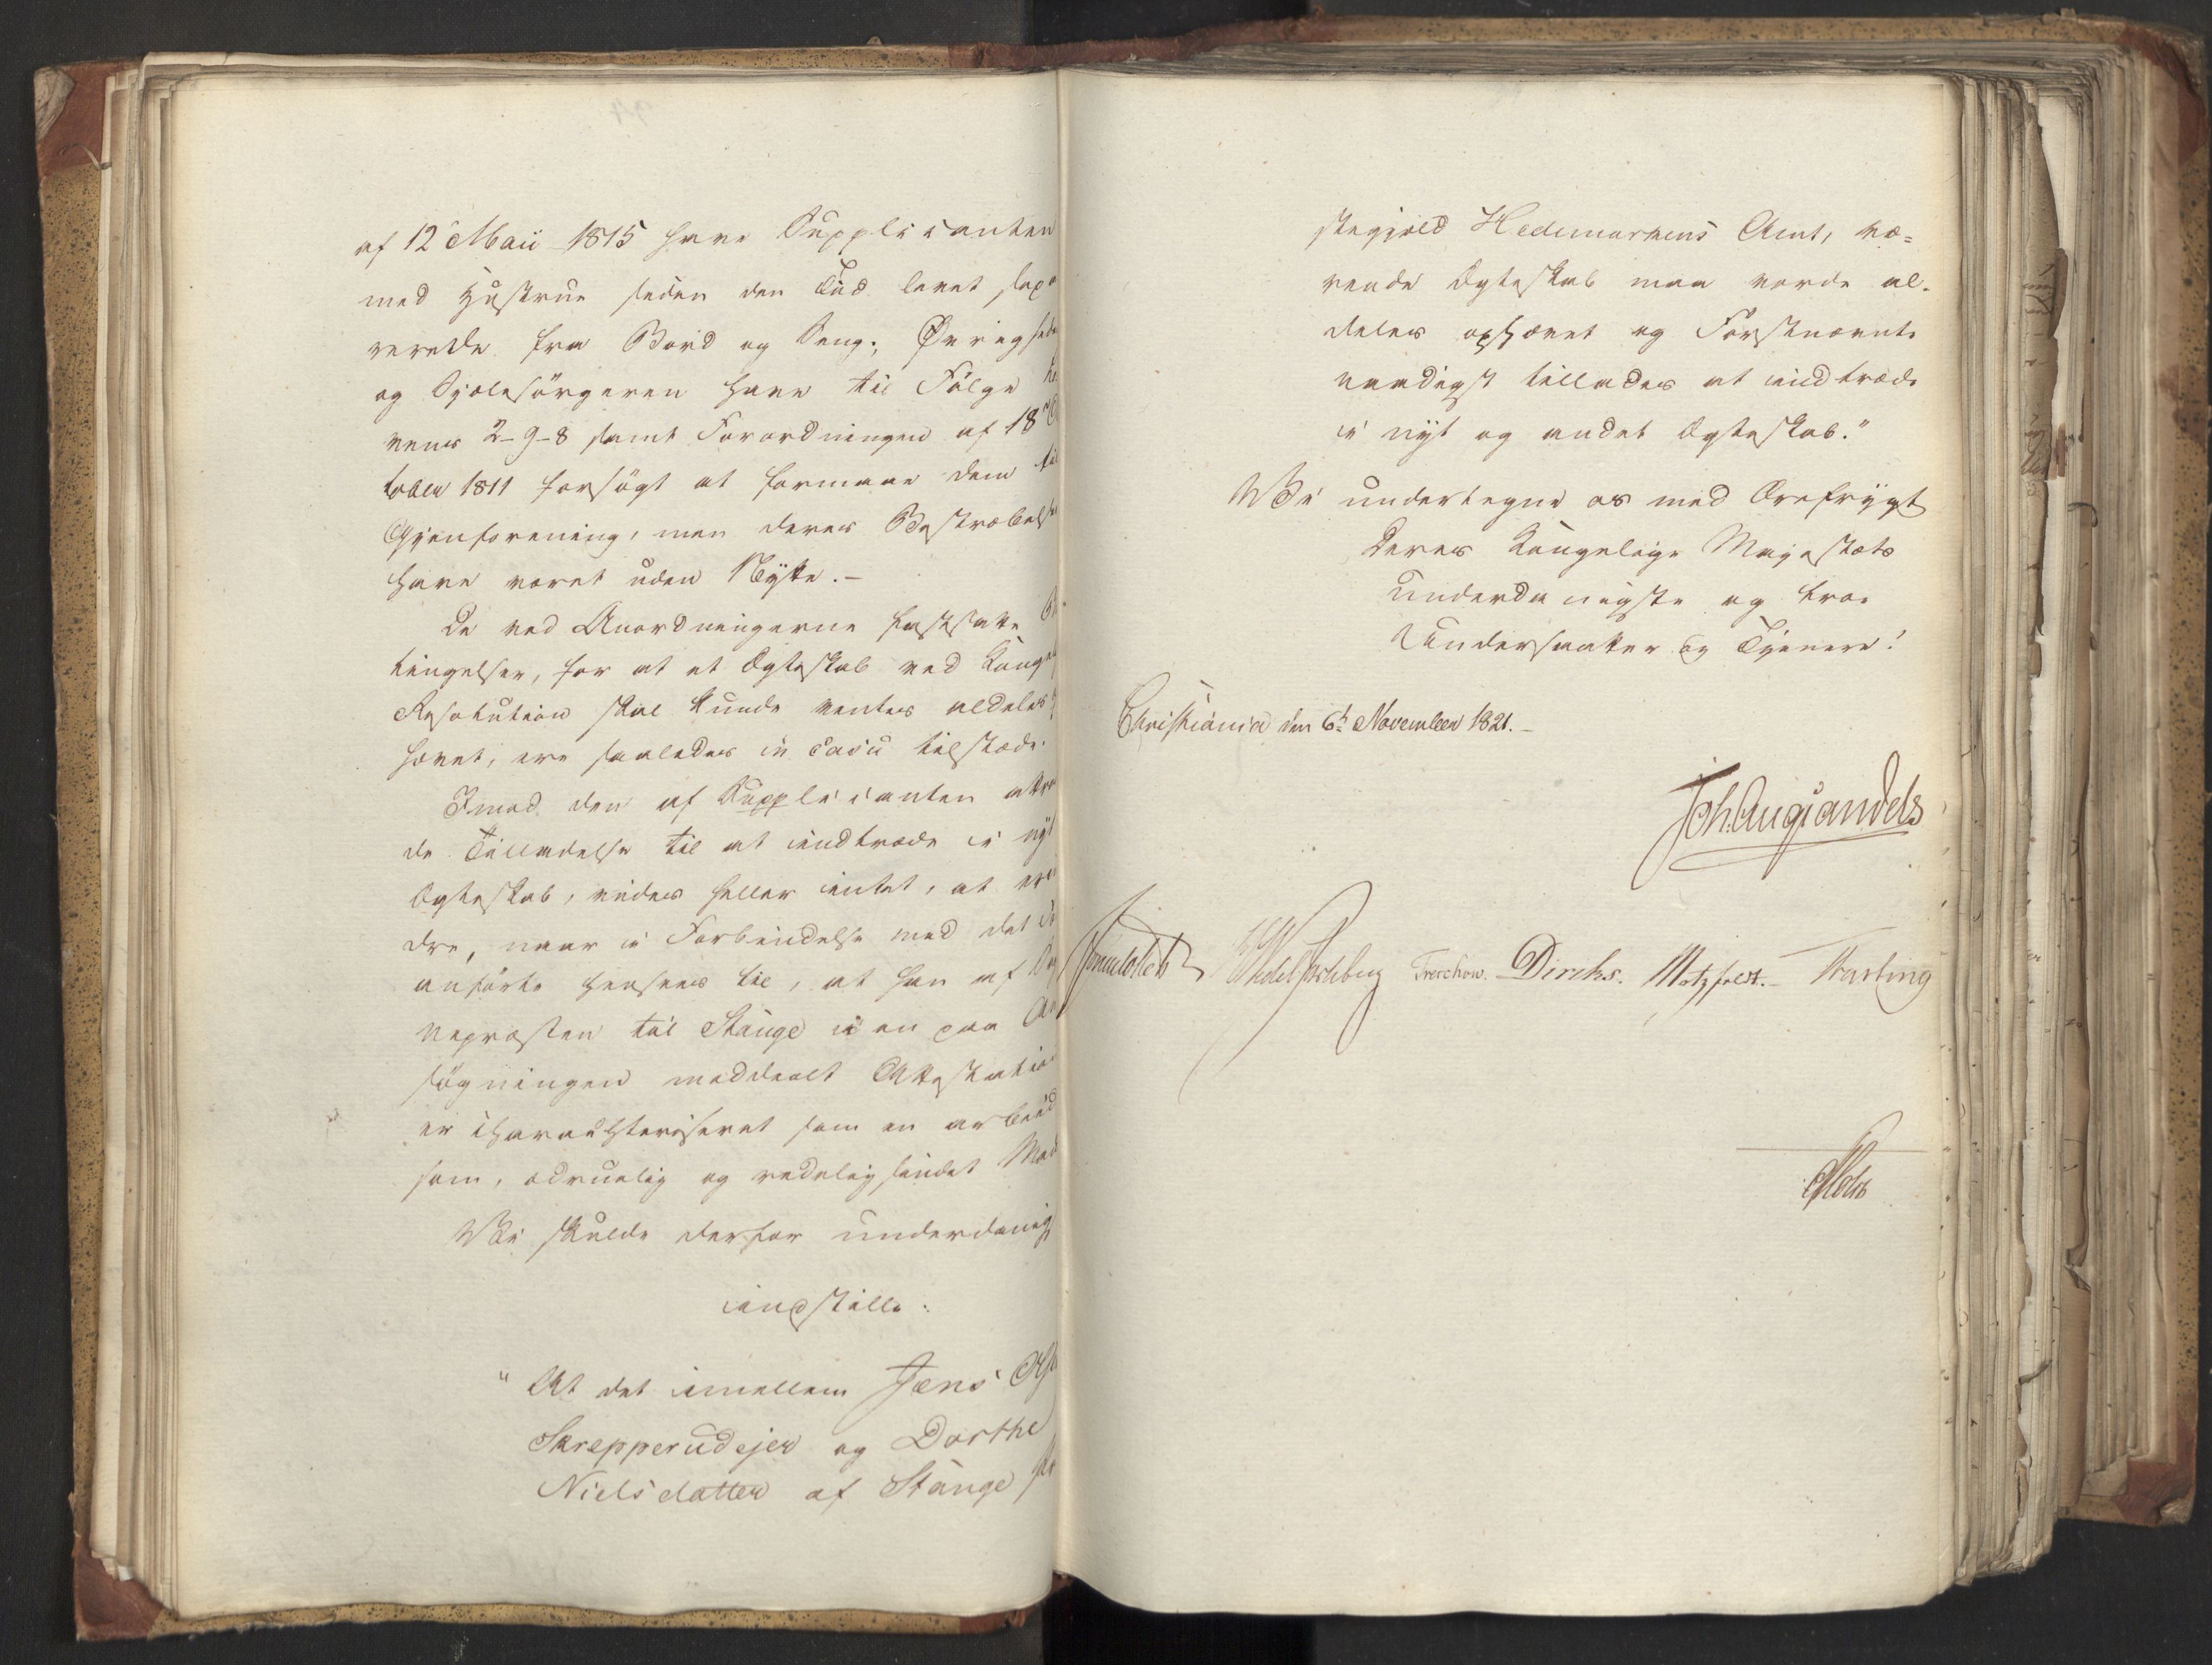 af 12 Maii 1815 have Supplicanten
med Hustrue siden den Tid levet sepa
rerede fra Bord og Seng; Øvrighede
og Sjælesörgeren have til Fölge Lo
vens 2-9-8 samt Forordningen af 18 O
tober 1811 forsögt at formaae dem til
Gjenforening, men deres Bestræbelse
have været uden Nytte.-
De ved Anordningerne fastsatte Be
tingelser, for at et Ægteskab ved Kongel
Resolution skal kunde ventes aldeles
hævet, ere saaledes in casu tilstæde.
Imod den af Supplicanten attra
de Tilladelse til at indtræde i nyt
Ægteskab, vides heller intet, at erin
dre, naar i Forbindelse med det
anförte hensees til, at han af
nepræsten til Stange i en paa An
sögningen meddeelt Attestation
er charachteriseret som en arbeid
som, ædruelig og redeligsindet Mand
Vi skulde derfor underdanigst
indstille:
"At det imellem Jens
Skrepperudejer og Dorthe
Nielsdatter af Stange
stegjeld Hedemarkens Amt, væ=
rende Ægteskab maa vorde al-
deles ophævet og Förstnævnte
naadigst tillades at indtræde
i nyt og andet Ægteskab."
Vi undertegne os med Ærefrygt
Deres Kongelige Majestæts
underdanigste og troe
Undersaatter og Tjenere!
Christiania den 6t November 1821.-
Joh. Aug Sandels
Sommerfeldt Wedel Jarlsberg Treschow. Diriks. Motzfeldt. Fasting
Holst